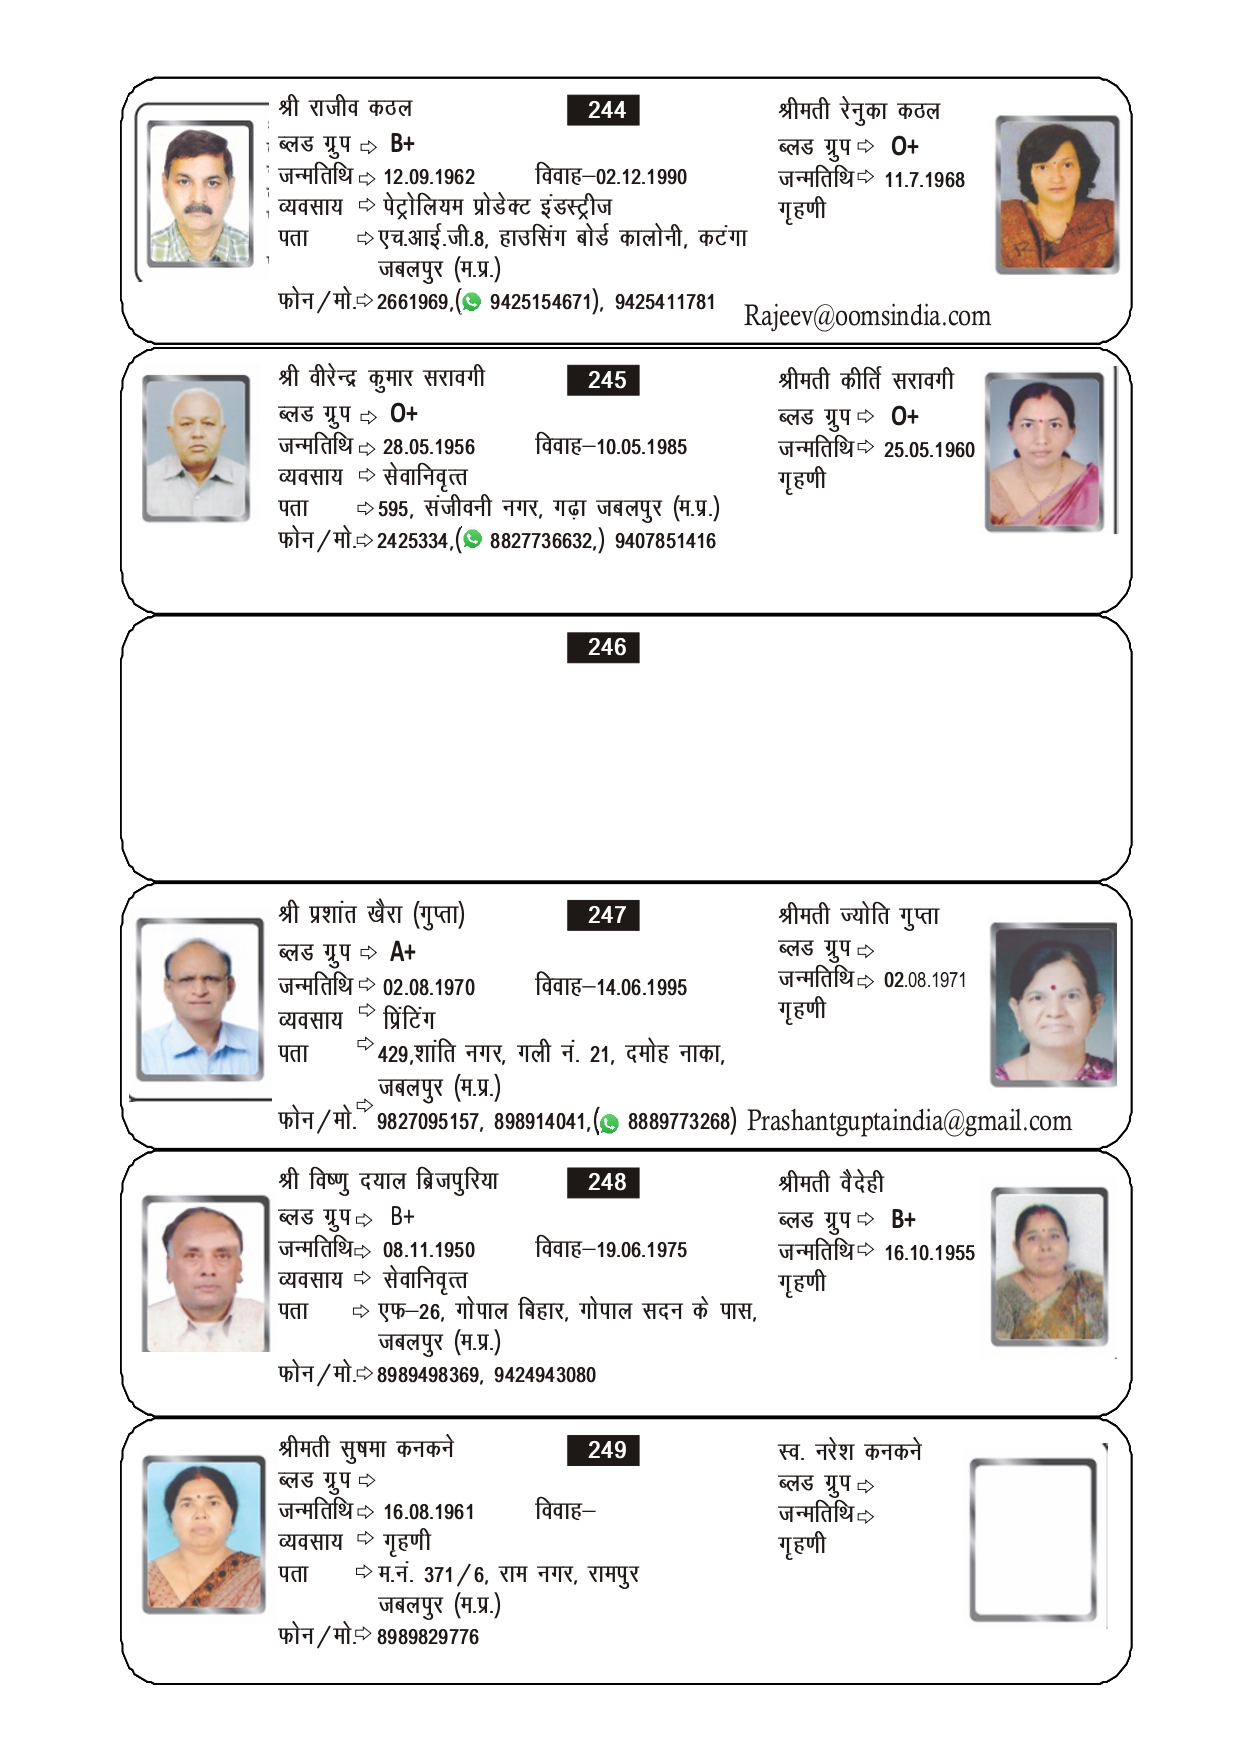 श्री राजीव कठल
244
श्रीमती रेनुका कठल
ब्लड ग्रुप ⇨ B+
ब्लड ग्रुप ⇨ O+
जन्मतिथि ⇨ 12.09.1962 विवाह–02.12.1990
जन्मतिथि ⇨ 11.7.1968
व्यवसाय ⇨ पेट्रोलियम प्रोडेक्ट इंडस्ट्रीज
गृहणी
पता ⇨ एच.आई.जी.8, हाउसिंग बोर्ड कालोनी, कटंगा
जबलपुर (म.प्र.)
फोन/मो.⇨ 2661969,( 9425154671), 9425411781
Rajeev@oomsindia.com
श्री वीरेन्द्र कुमार सरावगी
245
श्रीमती कीर्ति सरावगी
ब्लड ग्रुप ⇨ O+
ब्लड ग्रुप ⇨ O+
जन्मतिथि ⇨ 28.05.1956 विवाह–10.05.1985
जन्मतिथि ⇨ 25.05.1960
व्यवसाय ⇨ सेवानिवृत्त
गृहणी
पता ⇨ 595, संजीवनी नगर, गढ़ा जबलपुर (म.प्र.)
फोन/मो.⇨ 2425334,( 8827736632,) 9407851416
246
श्री प्रशांत खैरा (गुप्ता)
247
श्रीमती ज्योति गुप्ता
ब्लड ग्रुप ⇨ A+
ब्लड ग्रुप ⇨
जन्मतिथि ⇨ 02.08.1970 विवाह–14.06.1995
जन्मतिथि ⇨ 02.08.1971
व्यवसाय ⇨ प्रिंटिंग
गृहणी
पता ⇨ 429,शांति नगर, गली नं. 21, दमोह नाका,
जबलपुर (म.प्र.)
फोन/मो. ⇨ 9827095157, 898914041,( 8889773268) Prashantguptaindia@gmail.com
श्री विष्णु दयाल ब्रिजपुरिया
248
श्रीमती वैदेही
ब्लड ग्रुप ⇨ B+
ब्लड ग्रुप ⇨ B+
जन्मतिथि ⇨ 08.11.1950 विवाह–19.06.1975
जन्मतिथि ⇨ 16.10.1955
व्यवसाय ⇨ सेवानिवृत्त
गृहणी
पता ⇨ एफ–26, गोपाल बिहार, गोपाल सदन के पास,
जबलपुर (म.प्र.)
फोन/मो.⇨ 8989498369, 9424943080
श्रीमती सुषमा कनकने
249
स्व. नरेश कनकने
ब्लड ग्रुप ⇨
ब्लड ग्रुप ⇨
जन्मतिथि ⇨ 16.08.1961 विवाह–
जन्मतिथि ⇨
व्यवसाय ⇨ गृहणी
गृहणी
पता ⇨ म.नं. 371/6, राम नगर, रामपुर
जबलपुर (म.प्र.)
फोन/मो.⇨ 8989829776